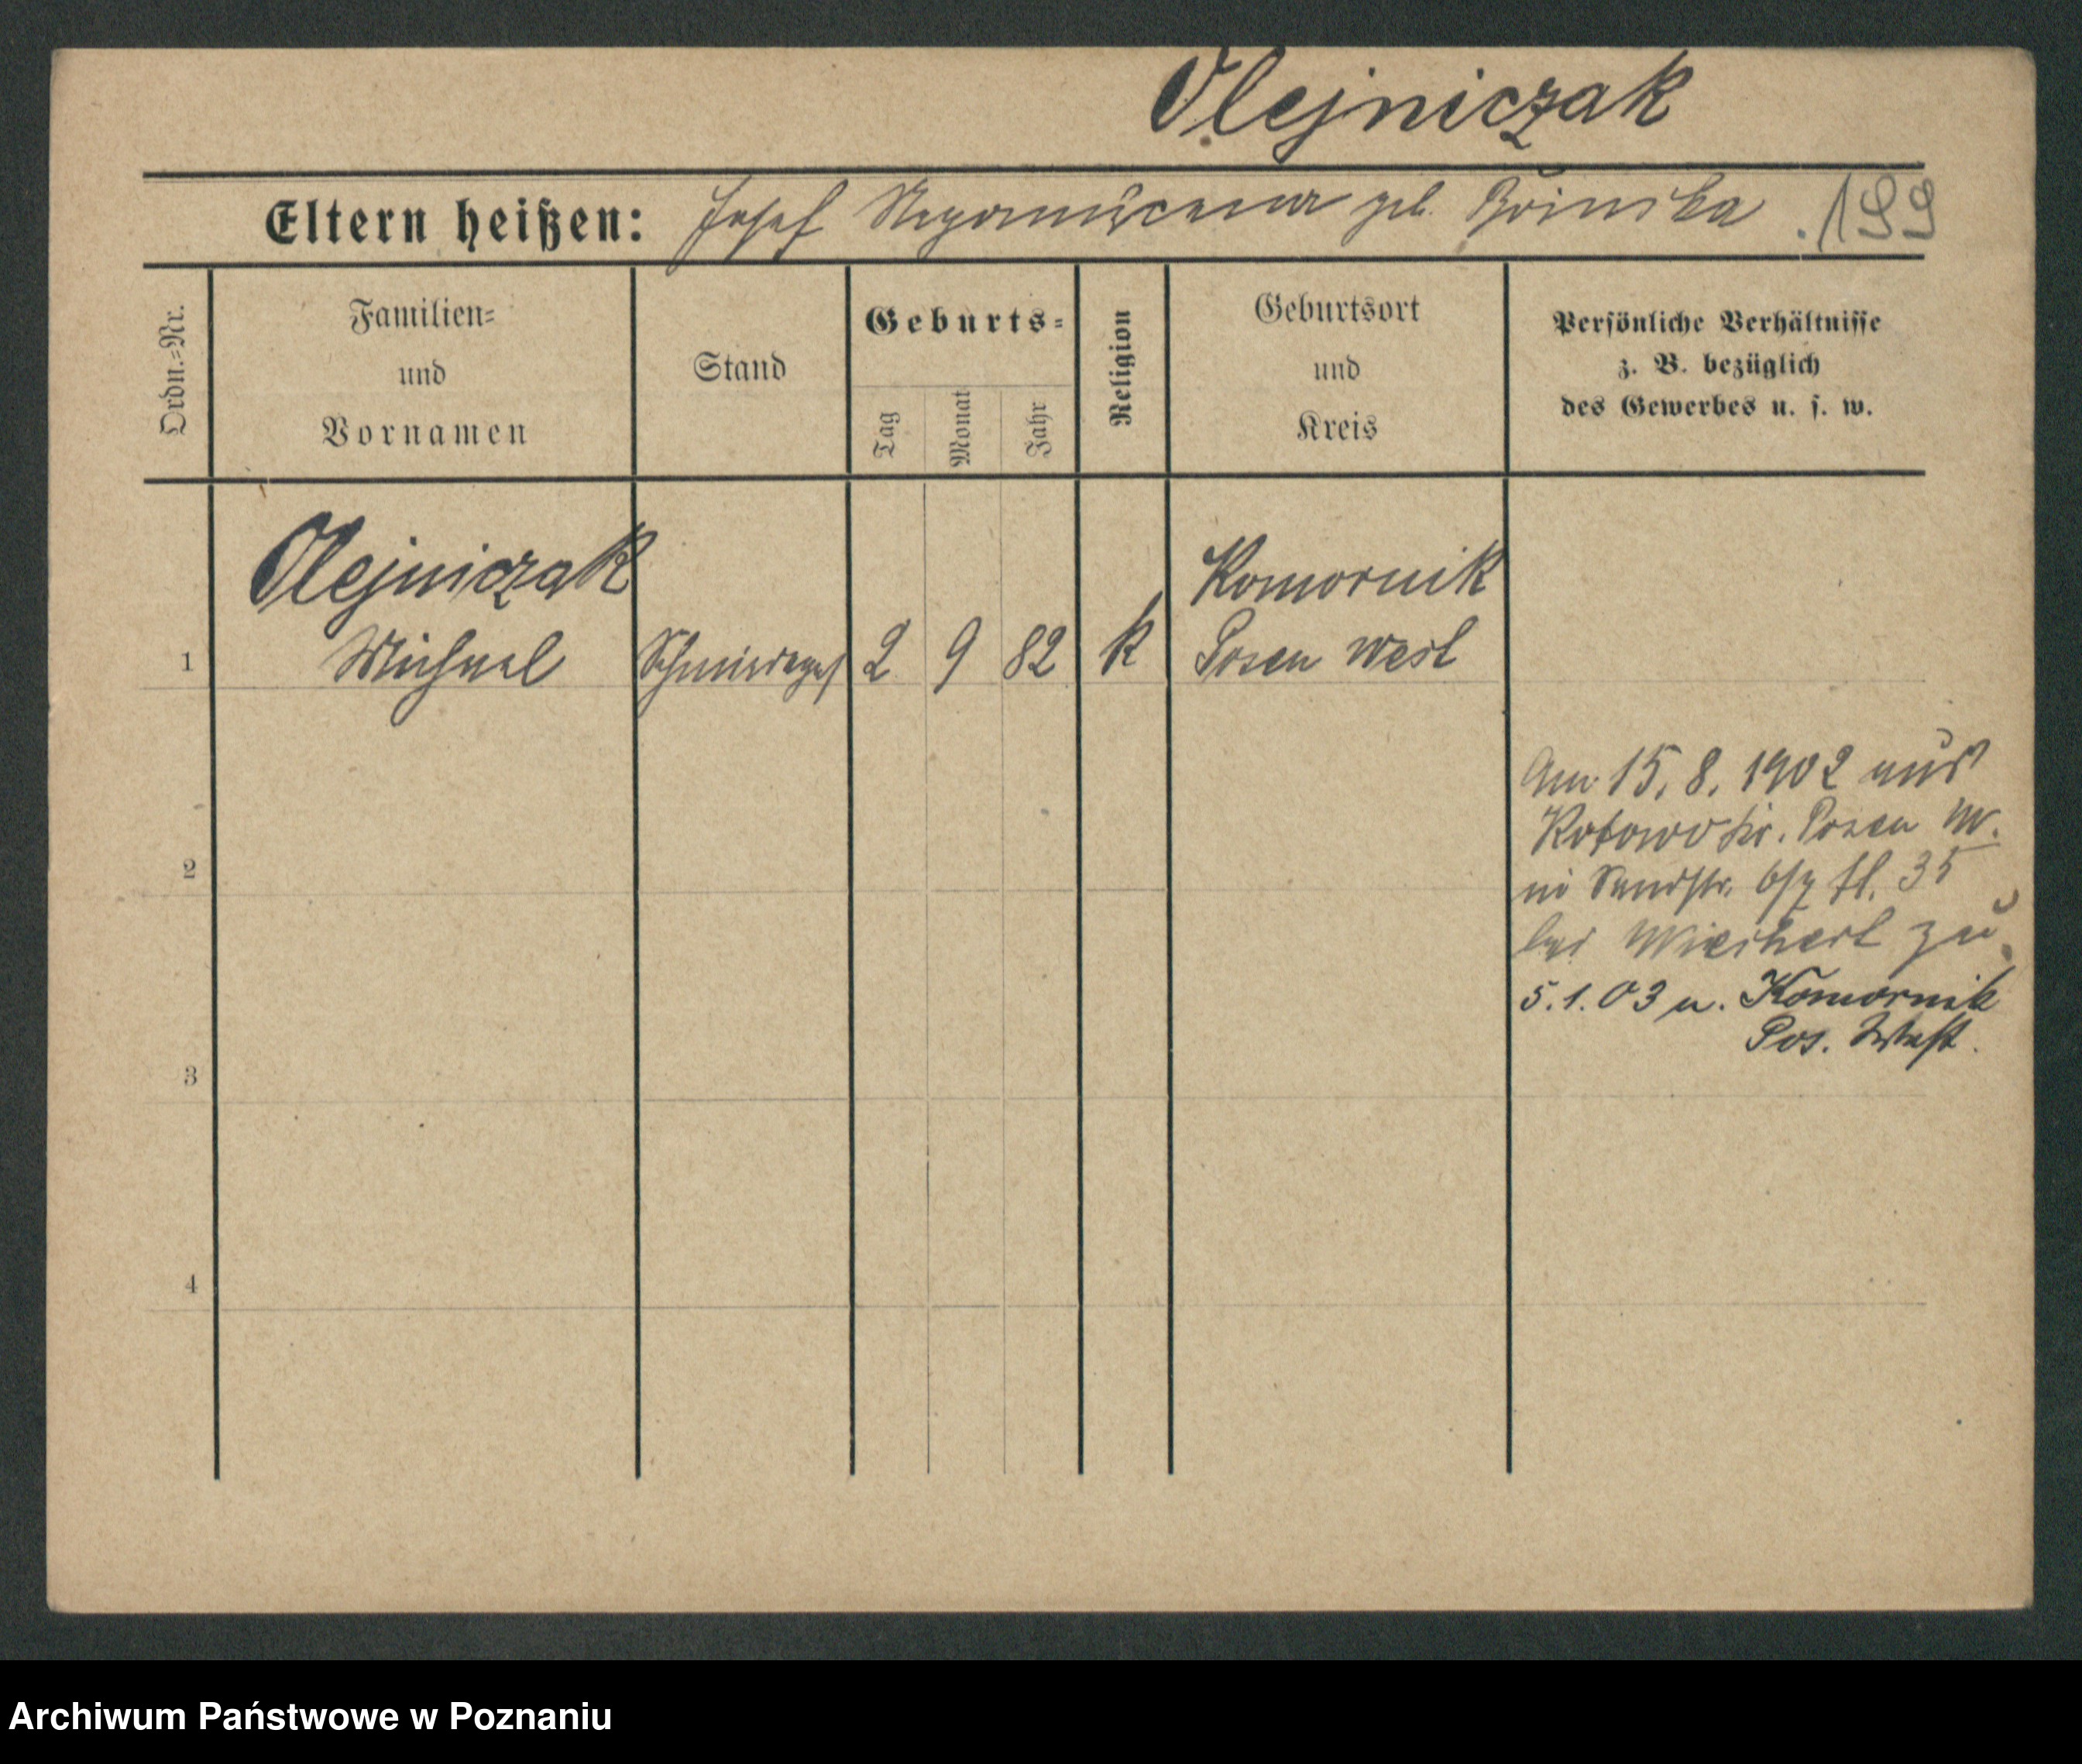 Olejniczak
Eltern heißen: Josef geb. 199
Ordn.=Nr.
Familien=
und
Vornamen
Stand
Geburts=
Tag
Monat
Jahr
Religion
Geburtsort
und
Kreis
Persönliche Verhältnisse
z. B. bezüglich
des Gewerbes u. s. w.
Olejniczak
Komornik
1 Michael Schmiedeges 2 9 82 k Posen West
Am 15. 8. 1902 aus
Kotowo Kr. Posen W.
2
Sandstr. 35
bei zu
5. 1. 03 n. Komornik
Pos. West.
3
4
Archiwum Państwowe w Poznaniu